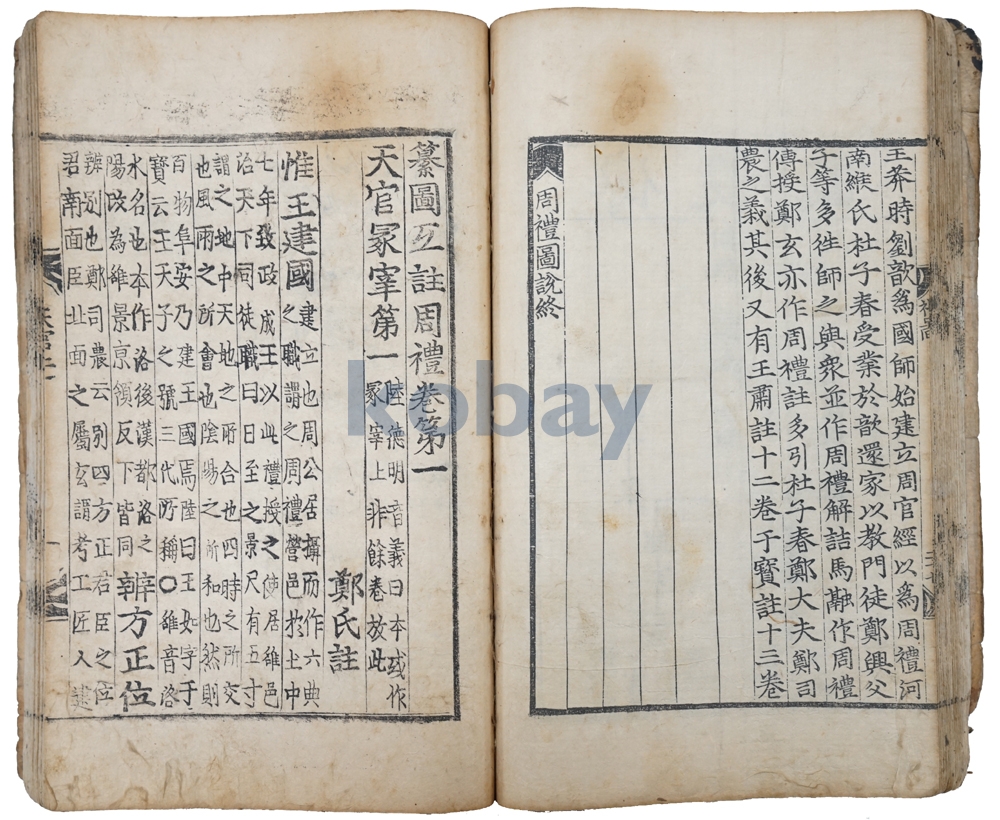 王莽時劉歆爲國師始建立周官經以爲周禮河
南緱氏杜子春受業於歆還家以教門徒鄭興父
子等多徃師之興衆並作周禮解詁馬融作周禮
傳授鄭玄亦作周禮註多引杜子春鄭大夫鄭司
農之義其後又有王肅註十二卷于寶註十三卷
周禮圖說終
纂圖互註周禮卷第一
天官冢宰第一 陸德明音義曰本或作
冢宰上非餘卷放此
鄭氏註
惟王建國 建立也周公居攝而作六典
之職謂之周禮營邑於土中
七年致政成王以此禮授之使居雒邑
治天下司徒職曰日至之景尺有五寸
謂之地中天地之所合也四時之所交
也風雨之所會也陰陽之所和也然則
百物阜安乃建王國焉陸曰王如字于
寶云王天子之號三代所稱○雒音洛
水名也本作洛後漢都洛之
陽改為雒景京領反下皆同 辨方正位
辨別也鄭司農云別四方正君臣之位
君南面臣北面之屬玄謂考工匠人建
kobay